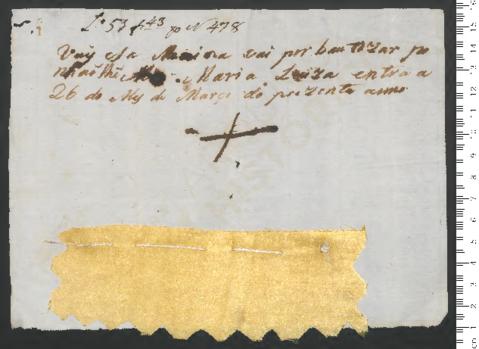 Lº 53 f 443 N 478
Vay esta Menina vai por bautizar po
nhailhe Maria Luiza entra a
26 do Mez de Março do prezente anno